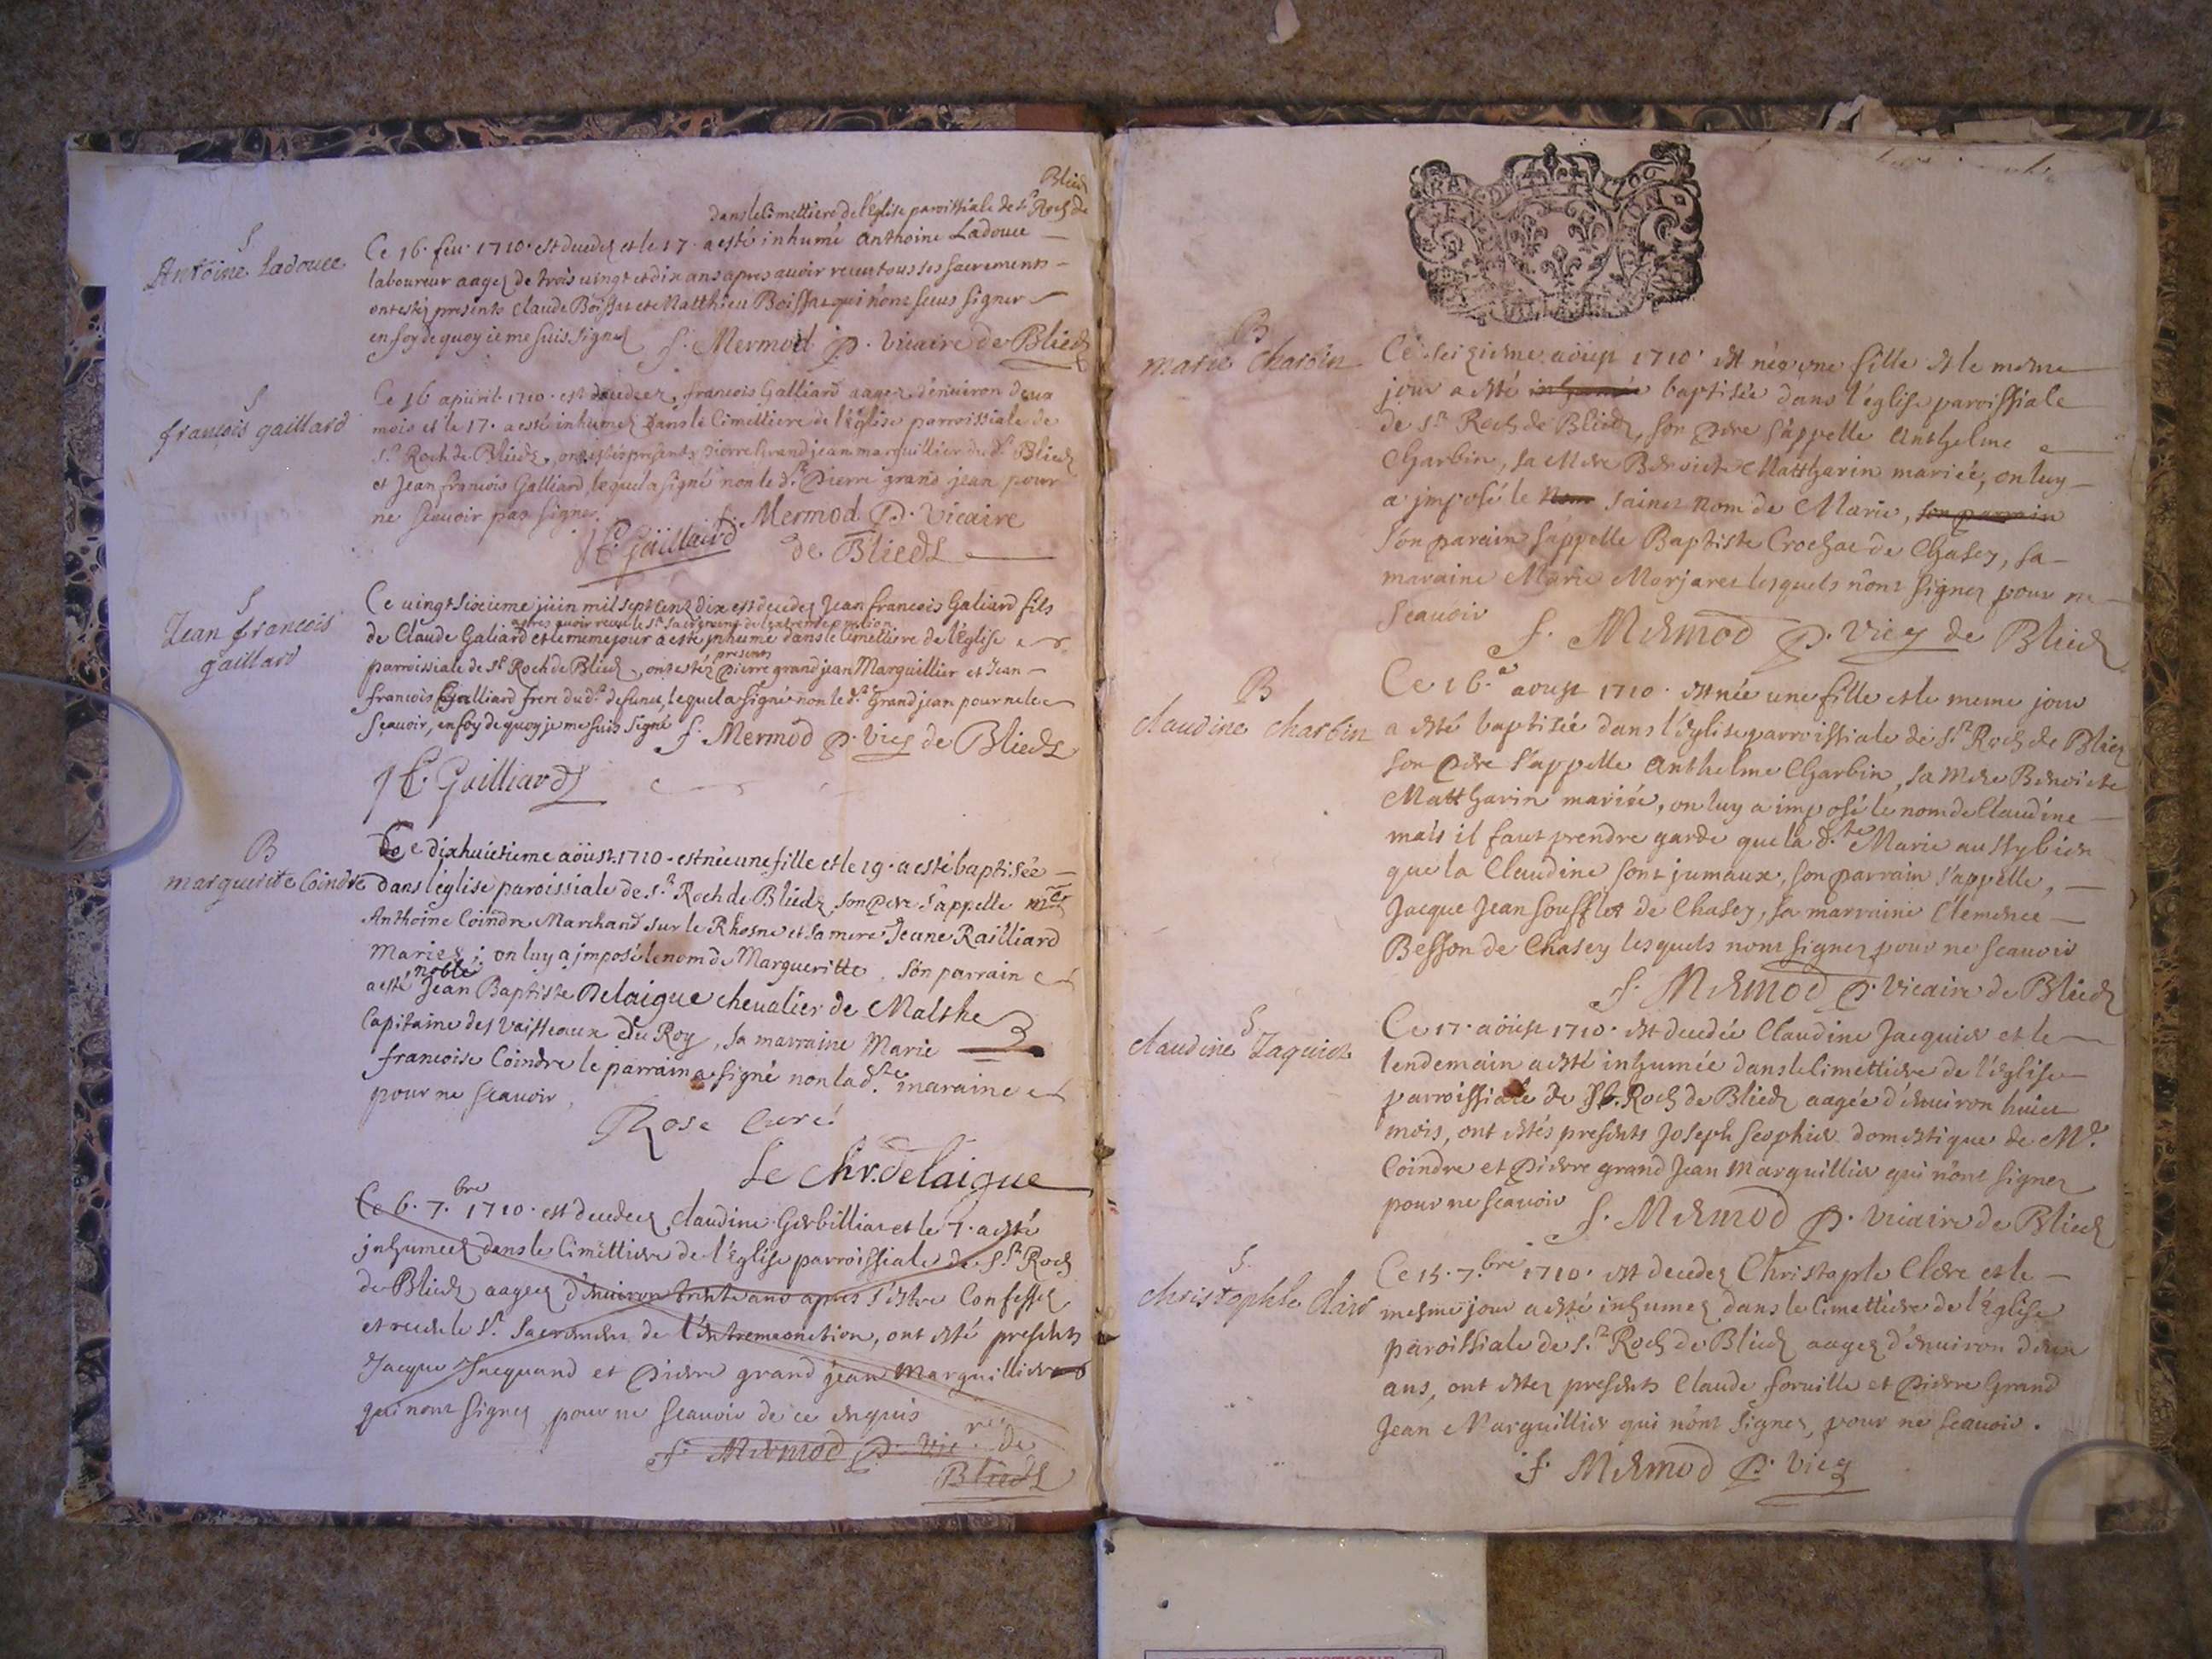 Blieds
dans le Cimettiere de l'Eglise paroissiale de St Roch de
S
Antoine Ladouce
Ce 16. feu. 1710. est decedez et le 17. a esté inhumé Anthoine Ladouce
laboureur aagez de trois vingt et dix ans apres avoir receu tous ses sacrements
ont estez presents Claude Boissat et Matthieu Boissat qui n'ont sceus signer
en foy de quoy ie me suis signez f. Mermod p. Vicaire de Blieds
S
françois gaillard
Ce 16 apuril 1710. est decedez francois Galliard aagez d'enuiron deux
mois et le 17. a esté inhumez Dans le Cimettiere de l'Eglise parroissiale de
St Roch de Blieds, ont estés présents pierre Grand jean marguillier du dt Blieds
et Jean francois Galliard, lequel a signé non le dt Pierre grand jean pour
ne scauoir pas signer. f. Mermod P. Vicaire
J f. Gailliard de Blieds
S
Jean francois
gaillard
Ce uingt sixieme juin mil sept cent dix est decedez Jean francois Galiard fils
apres auoir receu le St Sacrement de l'extremeonction
de Claude Galiard et le meme jour a esté inhumé dans le cimettiere de l'Eglise
presents
parroissiale de St Roch de Blieds, ont estéz Pierre grand jean Marguillier et Jean
francois Galliard frere du dt defunct, lequel a signé non le dt Grand jean pour ne le
scauoir, en foy de quoy je me suis signé f. Mermod p. Vicr de Blieds
J f. Gailliard
B
marguerite Coindre
Ce dixhuictieme aöust 1710. est née une fille et le 19. a esté baptisée
dans l'église paroissiale de St Roch de Blieds son pere s'appelle mtr
Anthoine Coindre Marchand sur le Rhosne et sa mere Jeane Railliard
Mariez; on luy a jmposé le nom de Margueritte. Son parrain
noble
a esté Jean Baptiste Delaigue cheualier de Malthe
Capitaine des Vaisseaux Du Roy, sa marraine Marie
francoise Coindre le parrain a signé non la dte maraine
pour ne scauoir,
Rose Curé
Le Chr. Delaigue
Ce 6. 7.bre 1710. est decedez Claudine Gerbilliat et le 7. a esté
jnhumeez dans le Cimettiere de l'Eglise parroissiale de St Roch
de Blieds aageez d'enuiron trente ans apres s'estre Confessez
et receu le St Sacrement de l'extremeonction, ont esté presents
Jacque Jacquand et Pierre grand jean Marguillier
qui n'ont signez pour ne scauoir de ce enquis
f. Mermod P. Vicre de
Blieds
B
marie Charbin
Ce seizieme aöust 1710. est née une fille et le mesme
jour a esté inhumée baptisée dans l'église paroissiale
de St Roch de Blieds, son pere s'appelle Anthelme
Charbin, sa Mere Benoiste Mattharin mariée, on luy
a jmposé le Nom sainct Nom de Marie, son parrain
son parain s'appelle Baptiste Crochat de Chasey, sa
maraine Marie Morjaret lesquels n'ont signez pour ne
scauoir f. Mermod P. Vicr de Blieds
B
claudine charbin
Ce 16.e aoust 1710. est née une fille et le meme jour
a esté baptisée dans l'Eglise parroissiale de St Roch de Blieds
son Pere s'appelle Anthelme Charbin, sa Mere Benoiste
Mattharin mariée, on luy a imposé le nom de Claudine
mais il faut prendre garde que la dte Marie aussy bien
que la Claudine sont jumaux, son parrain s'appelle,
Jacque Jean Soufflet de Chasey, sa marraine Clemence
Besson de Chasey lesquels n'ont signez pour ne scauoir
f. Mermod P. Vicaire de Blieds
S
claudine Jaquier
Ce 17. aöust 1710. est decedée Claudine Jacquier et le
lendemain a esté inhumée dans le Cimettiere de l'église
parroissiale de St. Roch de Blieds aagée d'enuiron huict
mois, ont estés presents Joseph Seophier domestique de Mr
Coindre et Pierre grand Jean Marguillier qui n'ont signez
pour ne scauoir f. Mermod P. Vicaire de Blieds
S.
christophle Clair
Ce 15. 7.bre 1710. est decedez Christople Clere et le
mesme jour a esté inhumez dans le Cimettiere de l'Eglise
paroissiale de St Roch de Blieds aagez d'enuiron deux
ans, ont estez presents Claude foruille et Pierre Grand
Jean Marguillier qui n'ont signez, pour ne scauoir.
f. Mermod P. Vicr